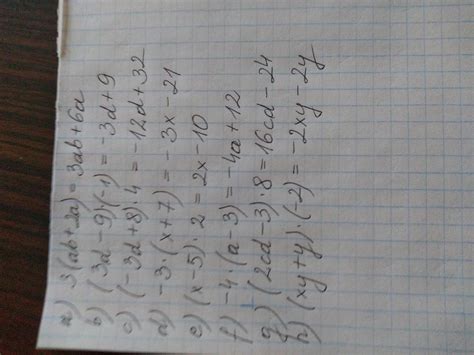 a) 3(ab+2a) = 3ab+6a
b) (3d-9)(-1) = -3d+9
c) (-3d+8)·4 = -12d+32
d) -3·(x+7) = -3x-21
e) (x-5)·2 = 2x-10
f) -4·(a-3) = -4a+12
g) (2cd-3)·8 = 16cd-24
h) (xy+y)·(-2) = -2xy-2y